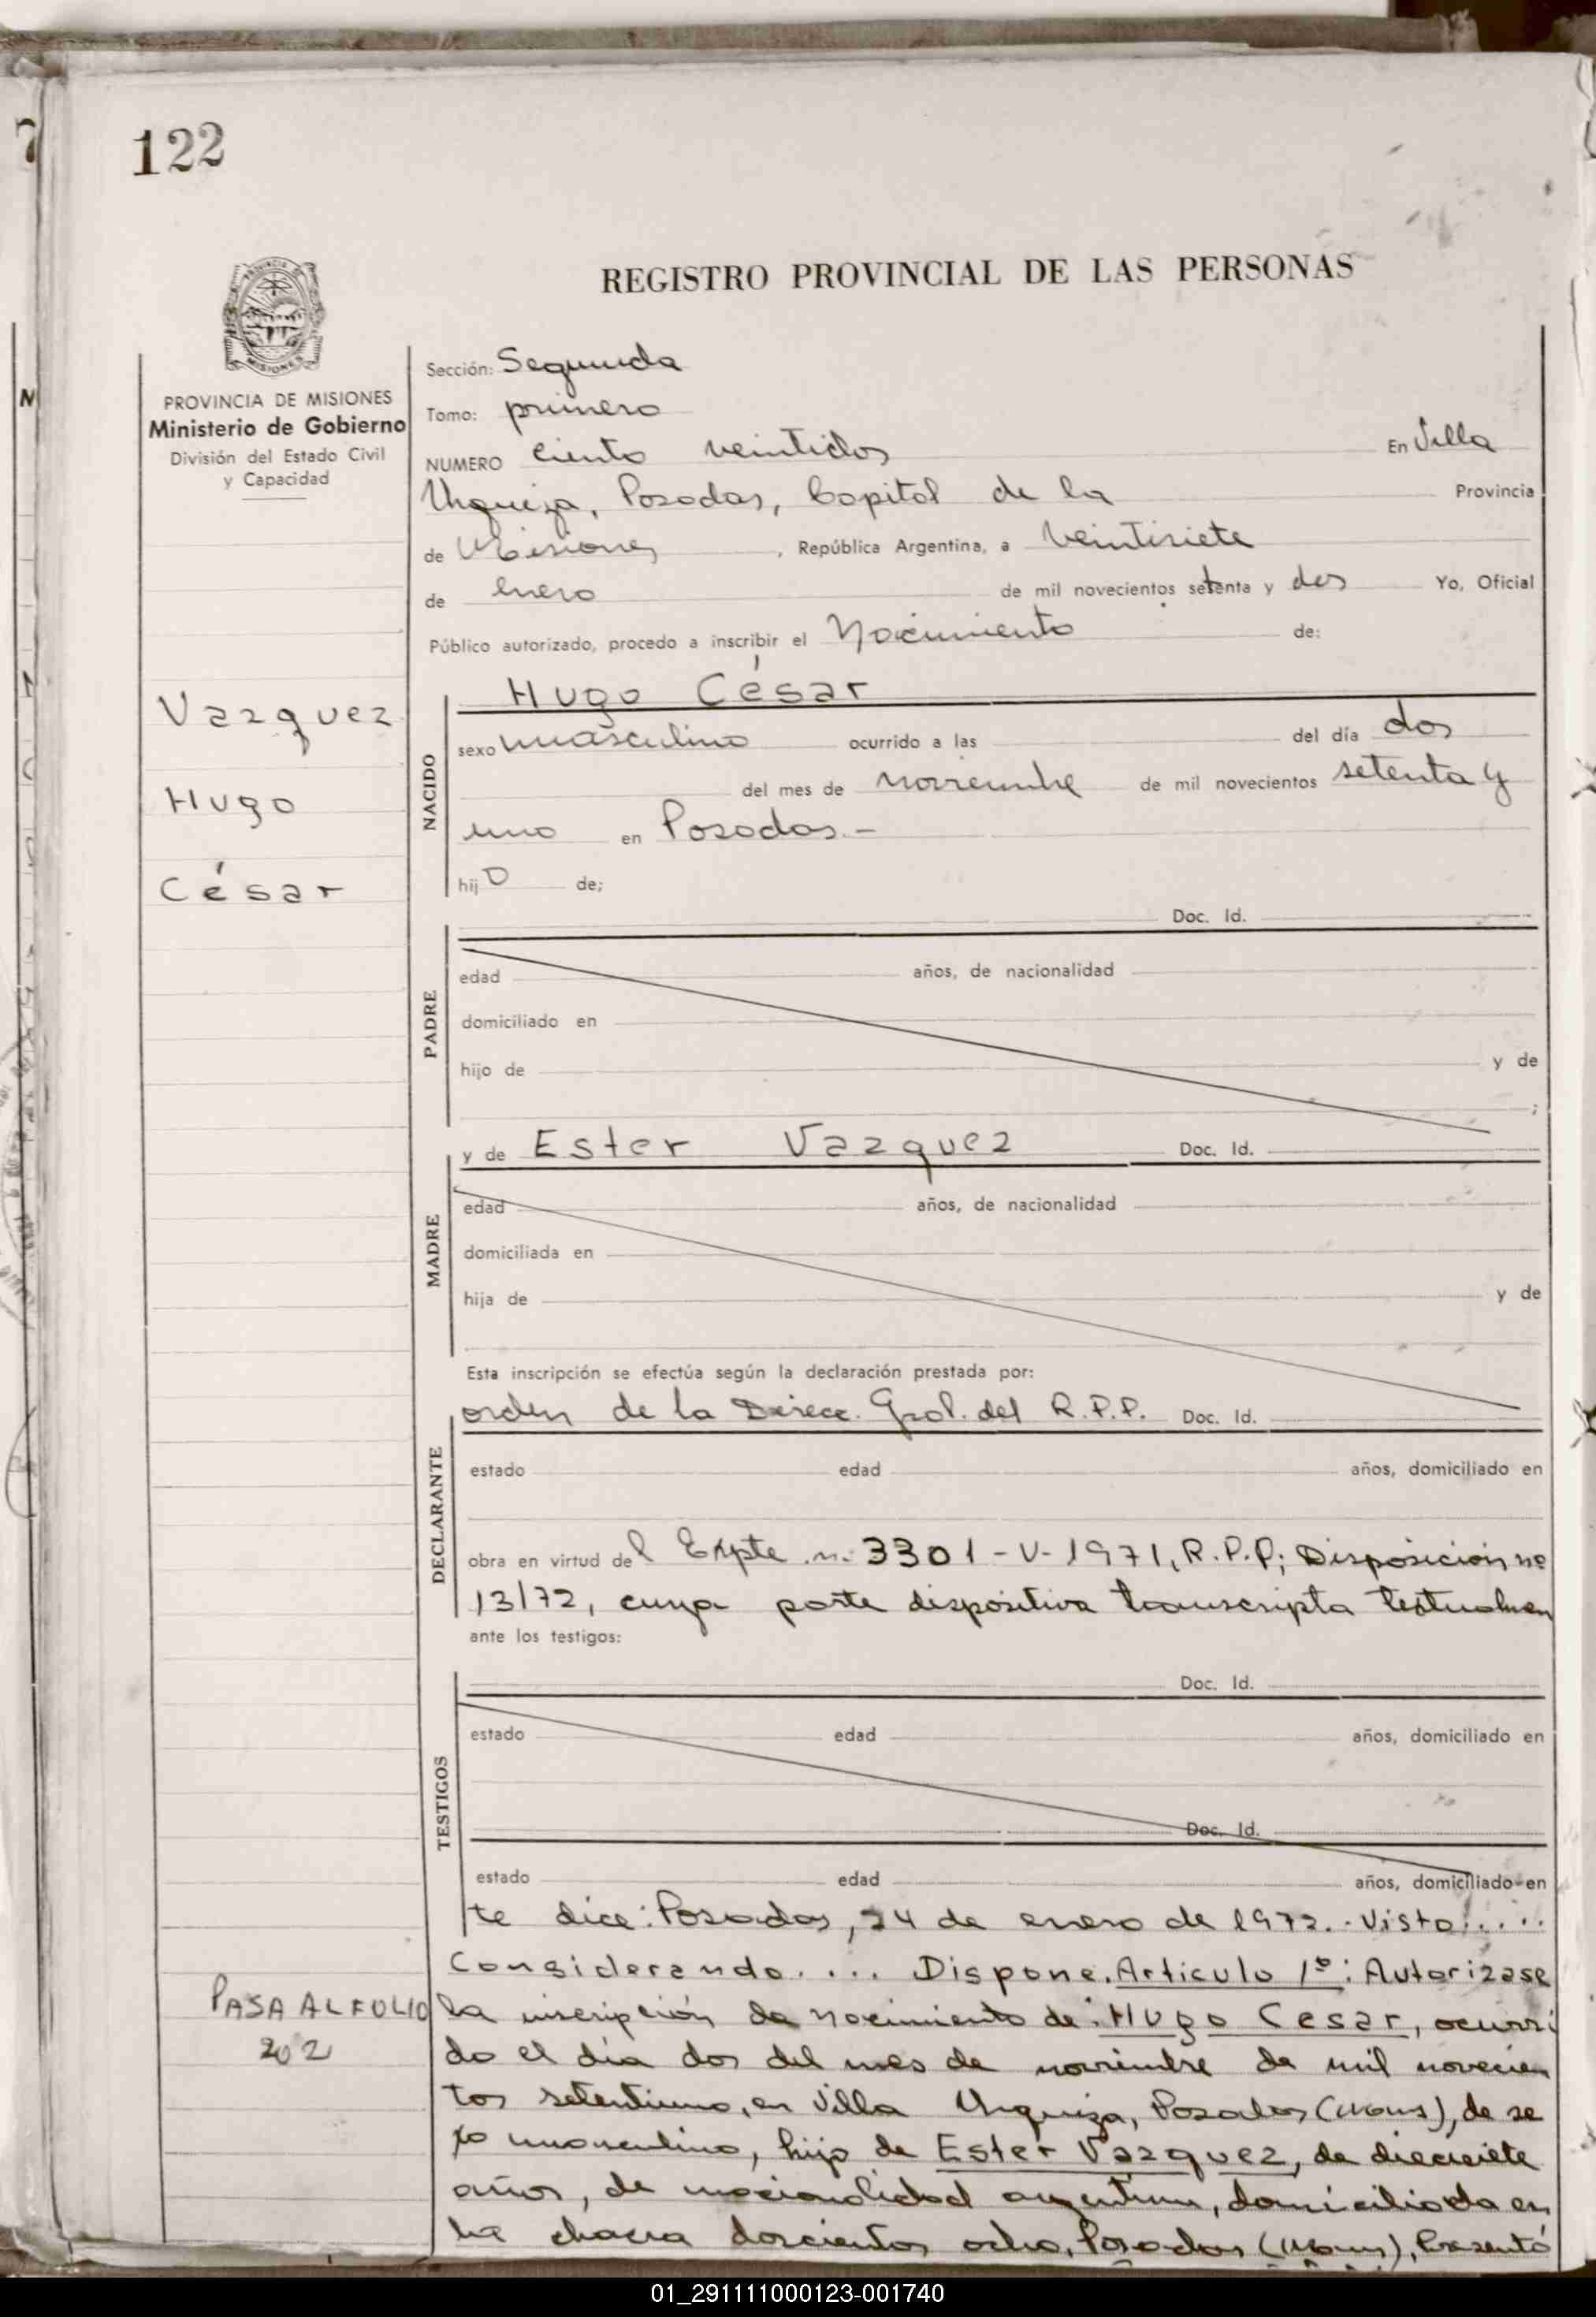 122
REGISTRO PROVINCIAL DE LAS PERSONAS
PROVINCIA DE MISIONES
Ministerio de Gobierno
División del Estado Civil
y Capacidad
Vazquez
Hugo
César
PASA AL FOLIO
202
Sección: Segunda
Tomo: primero
NUMERO ciento veintidos En Villa
Urquiza, Posadas, Capital de la Provincia
de Misiones, República Argentina, a veintisiete
de enero de mil novecientos setenta y dos Yo, Oficial
Público autorizado, procedo a inscribir el Nacimiento de:
NACIDO
Hugo César
sexo masculino ocurrido a las del día dos
del mes de noviembre de mil novecientos setenta y
uno en Posadas.-
hijo de;
Doc. Id.
PADRE
edad años, de nacionalidad
domiciliado en
hijo de y de
;
MADRE
y de Ester Vazquez Doc. Id.
edad años, de nacionalidad
domiciliada en
hija de y de
Esta inscripción se efectúa según la declaración prestada por:
DECLARANTE
orden de la Direcc. Gral. del R.P.P. Doc. Id.
estado edad años, domiciliado en
obra en virtud del Expte. n: 3301-V-1971, R.P.P; Disposición nº
13/72, cuya parte dispositiva transcripta textualmen
ante los testigos:
TESTIGOS
Doc. Id.
estado edad años, domiciliado en
Doc. Id.
estado edad años, domiciliado en
te dice: Posadas, 24 de enero de 1972.. Visto:....
Considerando.... Dispone. Artículo 1º: Autorizase
la inscripción de nacimiento de: Hugo Cesar, ocurri
do el día dos del mes de noviembre de mil novecien
tos setentiuno, en Villa Urquiza, Posadas (Mnes), de se
xo masculino, hijo de Ester Vazquez, de diecisiete
años, de nacionalidad argentina, domiciliada en
la chacra doscientos ocho, Posadas (Mnes), Presentó
01_291111000123-001740